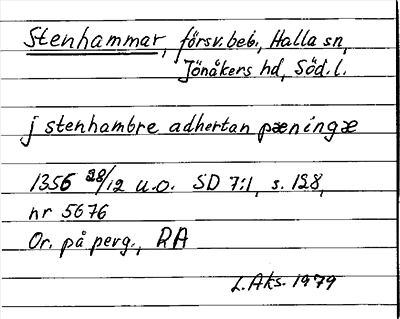 Stenhammar, försv. beb., Halla sn,
Jönåkers hd, Söd. l.
j stenhambre adhertan pæningæ
1356 28/12 u.o. SD 7:1, s. 128,
nr 5676
Or. på perg., RA
L. Aks. 1979